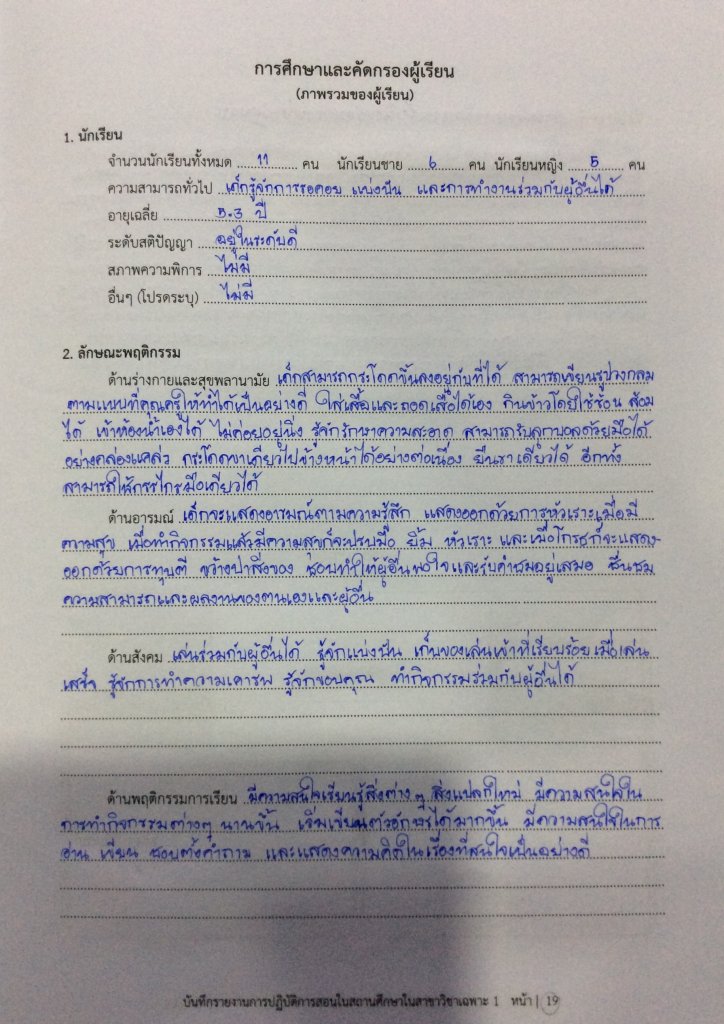 การศึกษาและคัดกรองผู้เรียน
(ภาพรวมของผู้เรียน)
1. นักเรียน
จำนวนนักเรียนทั้งหมด 11 คน นักเรียนชาย 6 คน นักเรียนหญิง 5 คน
ความสามารถทั่วไป เด็กรู้จักการรอคอย แบ่งปัน และการทำงานร่วมกับผู้อื่นได้
อายุเฉลี่ย 5.3 ปี
ระดับสติปัญญา อยู่ในระดับดี
สภาพความพิการ ไม่มี
อื่นๆ (โปรดระบุ) ไม่มี
2. ลักษณะพฤติกรรม
ด้านร่างกายและสุขพลานามัย เด็กสามารถกระโดดขึ้นลงอยู่กับที่ได้ สามารถเขียนรูปวงกลม
ตามแบบที่คุณครูให้ทำได้เป็นอย่างดี ใส่เสื้อและถอดเสื้อได้เอง กินข้าวโดยใช้ช้อน ส้อม
ได้ เข้าห้องน้ำเองได้ ไม่ค่อยอยู่นิ่ง รู้จักรักษาความสะอาด สามารถรับลูกบอลด้วยมือได้
อย่างคล่องแคล่ว กระโดดขาเดียวไปข้างหน้าได้อย่างต่อเนื่อง ยืนขาเดียวได้ อีกทั้ง
สามารถใช้กรรไกรมือเดียวได้
ด้านอารมณ์ เด็กจะแสดงอารมณ์ตามความรู้สึก แสดงออกด้วยการหัวเราะเมื่อมี
ความสุข เมื่อทำกิจกรรมแล้วมีความสุขก็จะปรบมือ ยิ้ม หัวเราะ และเมื่อโกรธก็จะแสดง
ออกด้วยการทุบตี ขว้างปาสิ่งของ ชอบทำให้ผู้อื่นพอใจและรับคำชมอยู่เสมอ ชื่นชม
ความสามารถและผลงานของตนเองและผู้อื่น
ด้านสังคม เล่นร่วมกับผู้อื่นได้ รู้จักแบ่งปัน เก็บของเล่นเข้าที่เรียบร้อยเมื่อเล่น
เสร็จ รู้จักการทำความเคารพ รู้จักขอบคุณ ทำกิจกรรมร่วมกับผู้อื่นได้
ด้านพฤติกรรมการเรียน มีความสนใจเรียนรู้สิ่งต่าง ๆ สิ่งแปลกใหม่ มีความสนใจใน
การทำกิจกรรมต่างๆ นานขึ้น เริ่มเขียนตัวอักษรได้มากขึ้น มีความสนใจในการ
อ่าน เขียน ชอบตั้งคำถาม และแสดงความคิดในเรื่องที่สนใจเป็นอย่างดี
บันทึกรายงานการปฏิบัติการสอนในสถานศึกษาในสาขาวิชาเฉพาะ 1 หน้า | 19